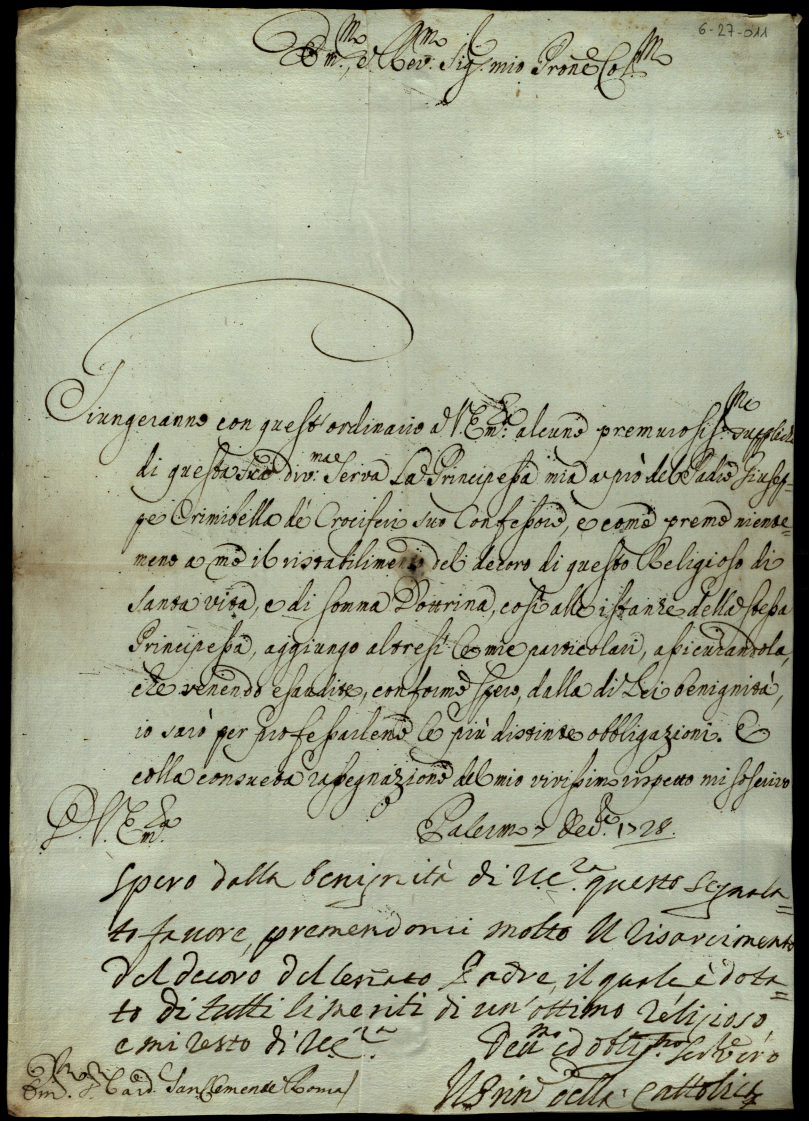 6-27-011
Em.mo, e Rev.mo Sig.r mio Prone Col.mo
Giungeranno con quest'ordinario a V. Em.za alcune premurosiss.me suppliche
di questa sua div.ma Serva la Principessa mia a prò del Padre Giusep=
pe Crimibella de' Crociferi suo Confessore, e come preme niente=
meno a me il ristabilimento del decoro di questo Religioso di
santa vita, e di somma Dottrina, così alle istanze della stessa
Principessa, aggiungo altresì le mie particolari, assicurandola,
che venendo esaudite, conforme spero, dalla di Lei benignità,
io sarò per professarlene le più distinte obbligazioni. E
colla consueta rassegnazione del mio vivissimo rispetto mi soscrivo
D. V. Em.za Palermo 7 1728.
Spero dalla benignità di V. E.za questo segnala=
to favore, premendomi molto il risarcimento
del decoro del Padre, il quale è dota=
to di tutti li meriti di un'ottimo religioso
e mi resto di V. E.za
Dev.mo ed obblig.mo Ser.re vero
Il Prin della Cattolica
Em. S. Card. San Clemente Roma